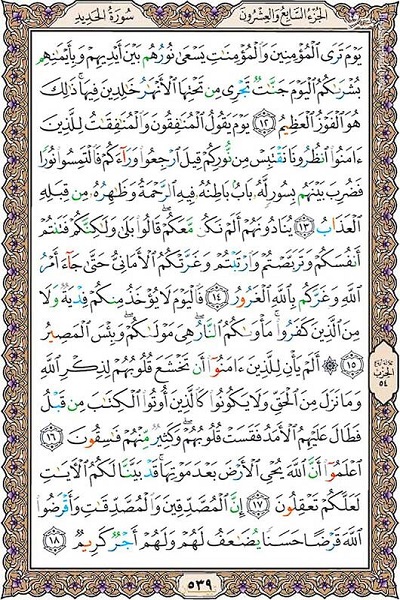 الجزء السابع والعشرون
سورة الحديد
يَوْمَ تَرَى الْمُؤْمِنِينَ وَالْمُؤْمِنَاتِ يَسْعَىٰ نُورُهُم بَيْنَ أَيْدِيهِمْ وَبِأَيْمَانِهِم
بُشْرَاكُمُ الْيَوْمَ جَنَّاتٌ تَجْرِي مِن تَحْتِهَا الْأَنْهَارُ خَالِدِينَ فِيهَا ۚ ذَٰلِكَ
هُوَ الْفَوْزُ الْعَظِيمُ ﴿١٢﴾ يَوْمَ يَقُولُ الْمُنَافِقُونَ وَالْمُنَافِقَاتُ لِلَّذِينَ
ءَامَنُوا انظُرُونَا نَقْتَبِسْ مِن نُّورِكُمْ قِيلَ ارْجِعُوا وَرَاءَكُمْ فَالْتَمِسُوا نُورًا
فَضُرِبَ بَيْنَهُم بِسُورٍ لَّهُ بَابٌ بَاطِنُهُ فِيهِ الرَّحْمَةُ وَظَاهِرُهُ مِن قِبَلِهِ
الْعَذَابُ ﴿١٣﴾ يُنَادُونَهُمْ أَلَمْ نَكُن مَّعَكُمْ ۖ قَالُوا بَلَىٰ وَلَٰكِنَّكُمْ فَتَنتُمْ
أَنفُسَكُمْ وَتَرَبَّصْتُمْ وَارْتَبْتُمْ وَغَرَّتْكُمُ الْأَمَانِيُّ حَتَّىٰ جَاءَ أَمْرُ
اللَّهِ وَغَرَّكُم بِاللَّهِ الْغَرُورُ ﴿١٤﴾ فَالْيَوْمَ لَا يُؤْخَذُ مِنكُمْ فِدْيَةٌ وَلَا
مِنَ الَّذِينَ كَفَرُوا ۚ مَأْوَاكُمُ النَّارُ ۖ هِيَ مَوْلَاكُمْ ۖ وَبِئْسَ الْمَصِيرُ
﴿١٥﴾ ۞ أَلَمْ يَأْنِ لِلَّذِينَ ءَامَنُوا أَن تَخْشَعَ قُلُوبُهُمْ لِذِكْرِ اللَّهِ
وَمَا نَزَلَ مِنَ الْحَقِّ وَلَا يَكُونُوا كَالَّذِينَ أُوتُوا الْكِتَابَ مِن قَبْلُ
فَطَالَ عَلَيْهِمُ الْأَمَدُ فَقَسَتْ قُلُوبُهُمْ ۖ وَكَثِيرٌ مِّنْهُمْ فَاسِقُونَ ﴿١٦﴾
اعْلَمُوا أَنَّ اللَّهَ يُحْيِي الْأَرْضَ بَعْدَ مَوْتِهَا ۚ قَدْ بَيَّنَّا لَكُمُ الْآيَاتِ
لَعَلَّكُمْ تَعْقِلُونَ ﴿١٧﴾ إِنَّ الْمُصَّدِّقِينَ وَالْمُصَّدِّقَاتِ وَأَقْرَضُوا
اللَّهَ قَرْضًا حَسَنًا يُضَاعَفُ لَهُمْ وَلَهُمْ أَجْرٌ كَرِيمٌ ﴿١٨﴾
الحزب
٥٤
٥٣٩